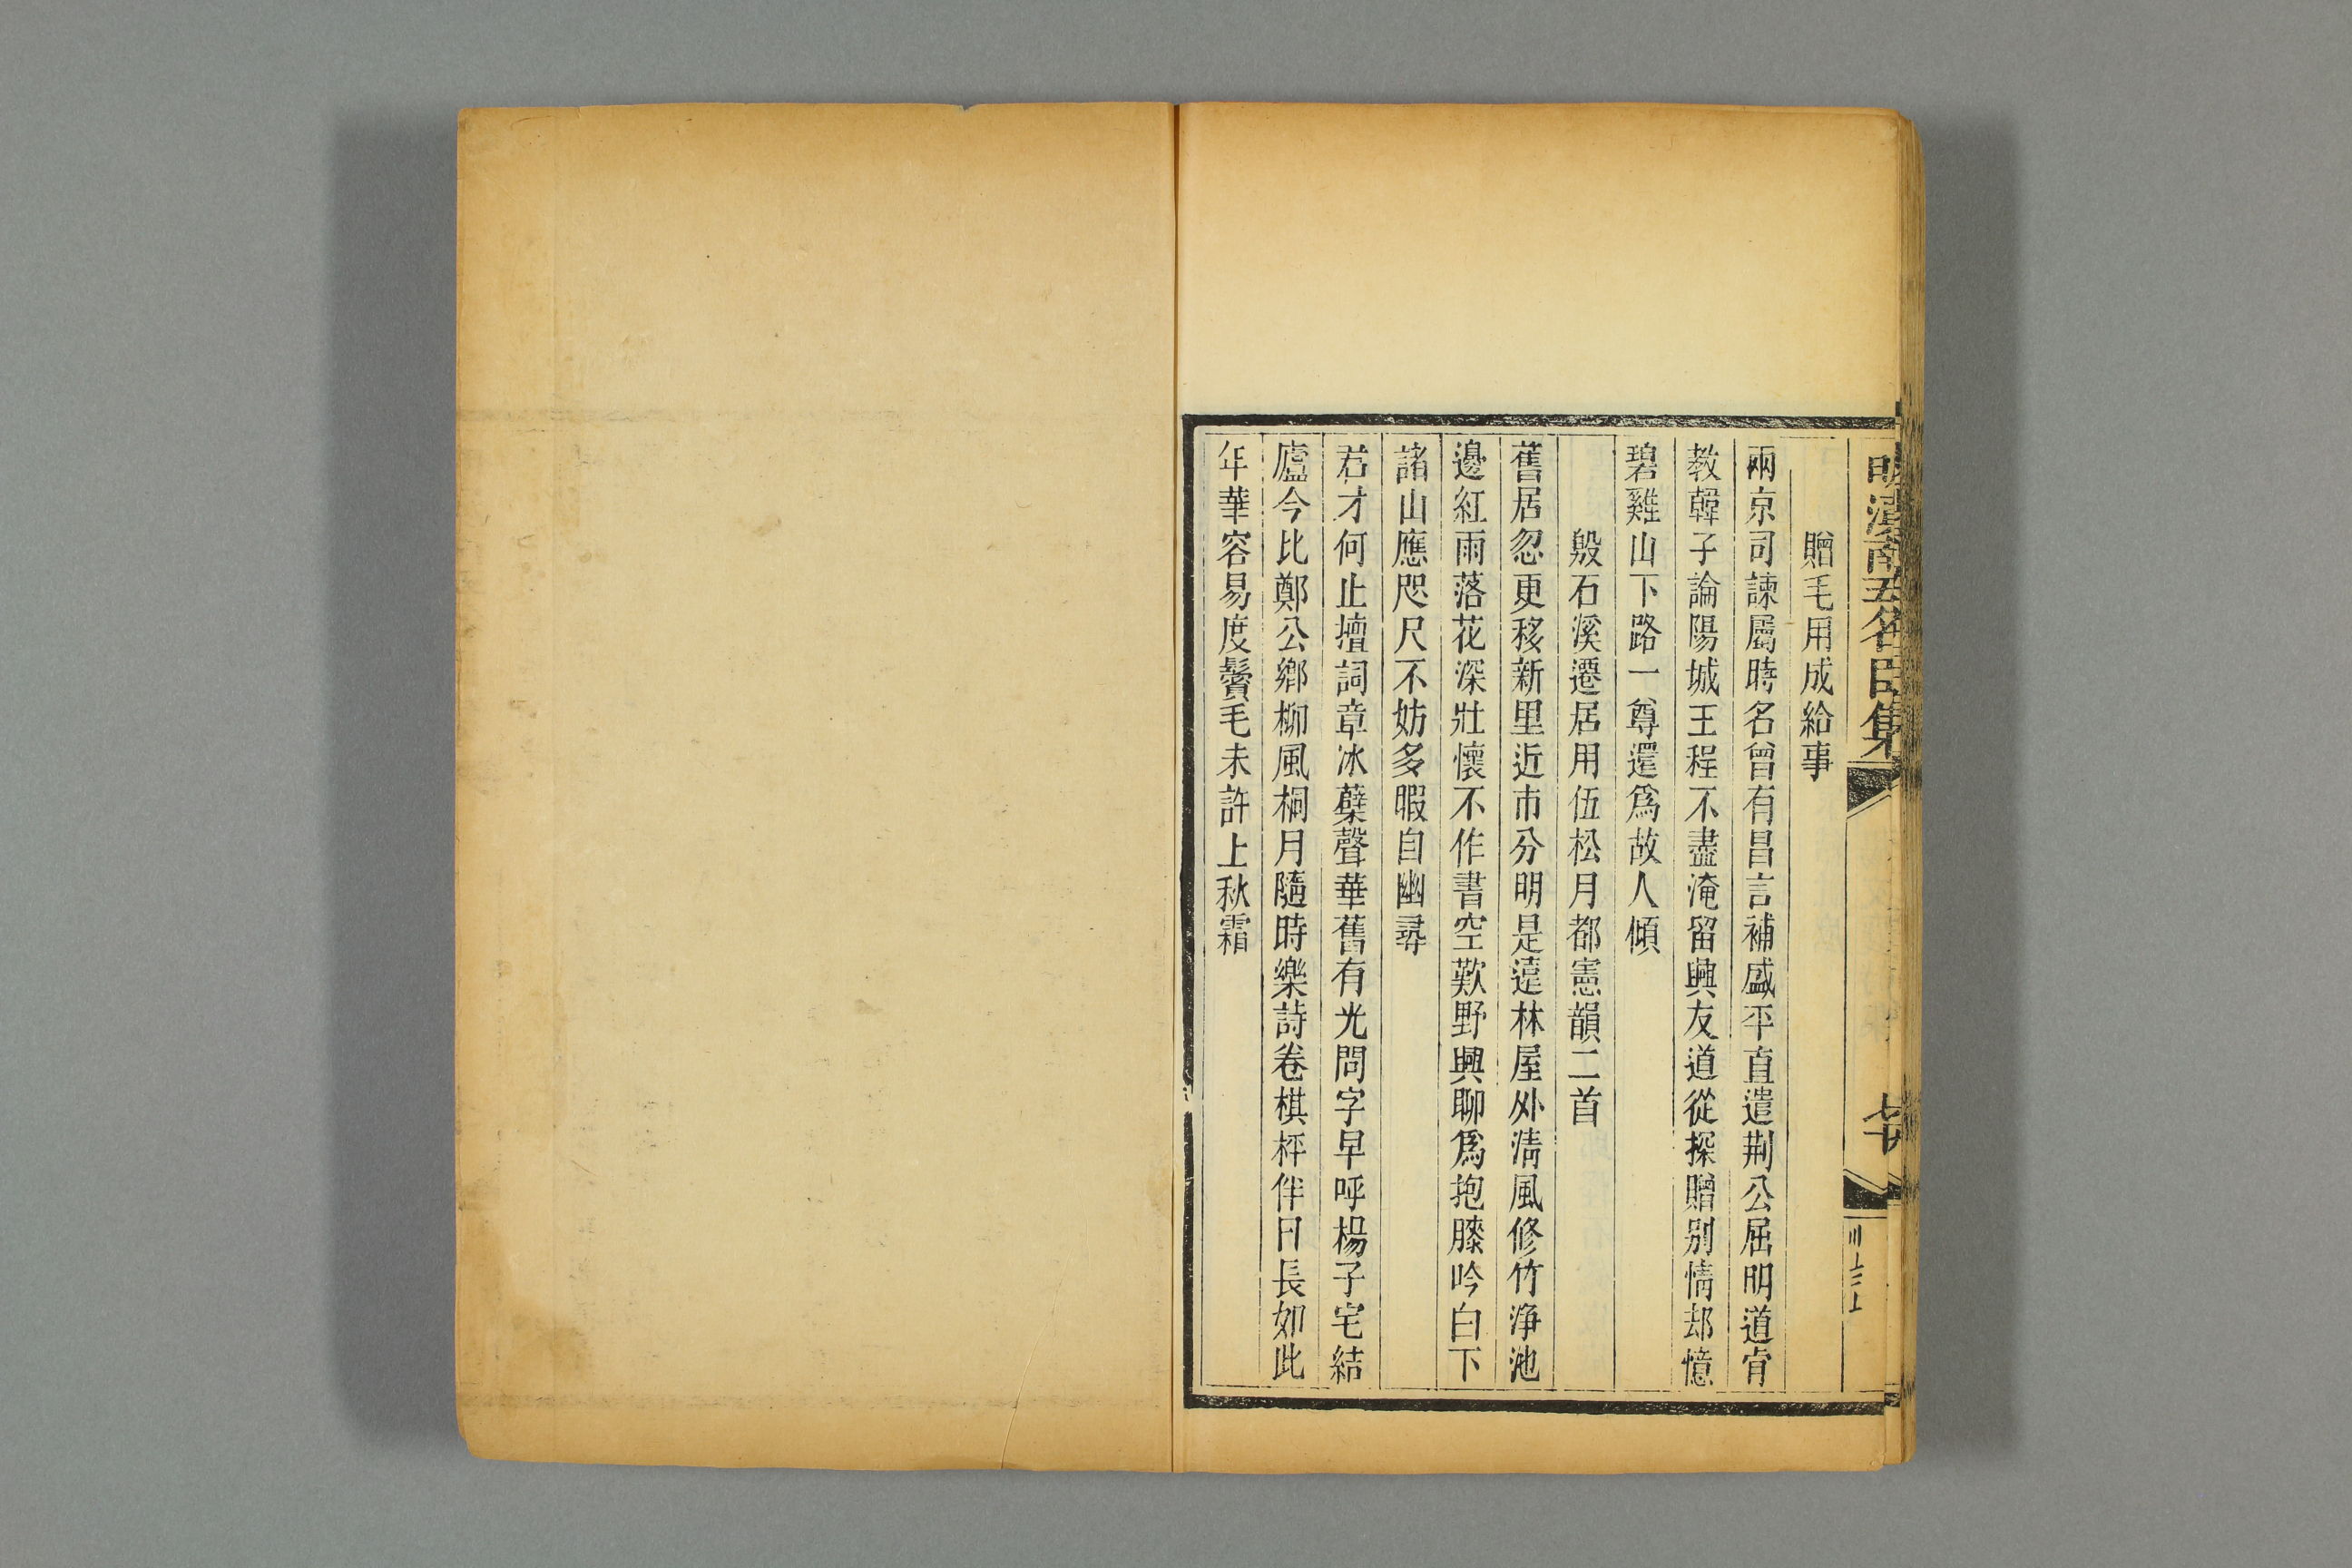 贈毛用成給事
兩京司諫屬時名曾有昌言補盛平直遣荆公屈明道肯
教韓子論陽城王程不盡淹留興友道從探贈别情却憶
碧雞山下路一尊還爲故人傾
殷石溪遷居用伍松月都憲韻二首
舊居忽更移新里近市分明是遠林屋外清風修竹浄池
邊紅雨落花深壯懷不作書空歎野興聊爲抱膝吟白下
諸山應咫尺不妨多暇自幽尋
君才何止壇詞章冰蘖聲華舊有光問字早呼楊子宅結
廬今比鄭公鄉柳風桐月隨時樂詩卷棋枰伴日長如此
年華容易度鬢毛未許上秋霜